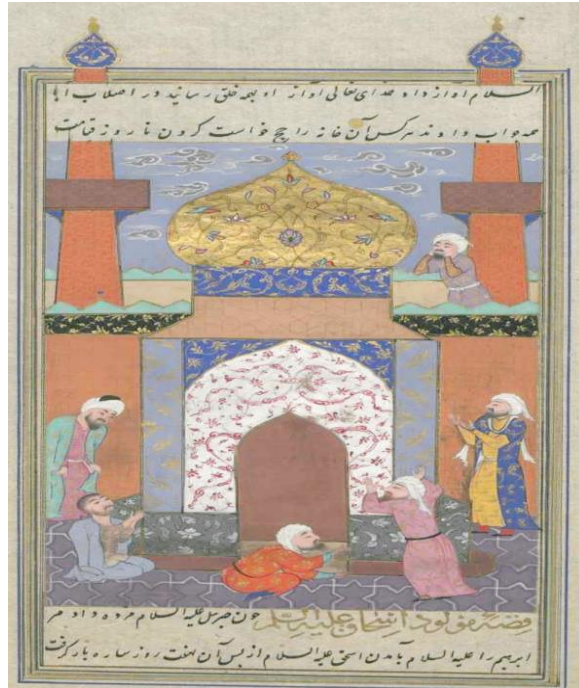 السلام اواز داد خدای تعالی اواز او بهمه خلق رسانید در اصلاب ابا
همه جواب دادند هرکس آن خانه را حج خواست کردن تا روز قیامت
قصه مولود اسحاق علیه السلم چون جبرئیل علیه السلام مژده داد مر
ابرهیم را علیه السلام بآمدن اسحق علیه السلام از پس آن بهفت روز ساره بار گرفت